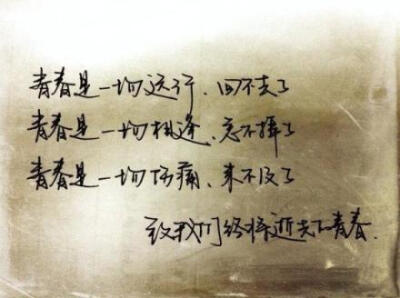 青春是一场远行、回不去了
青春是一场相逢、忘不掉了
青春是一场伤痛、来不及了
致我们终将逝去的青春.